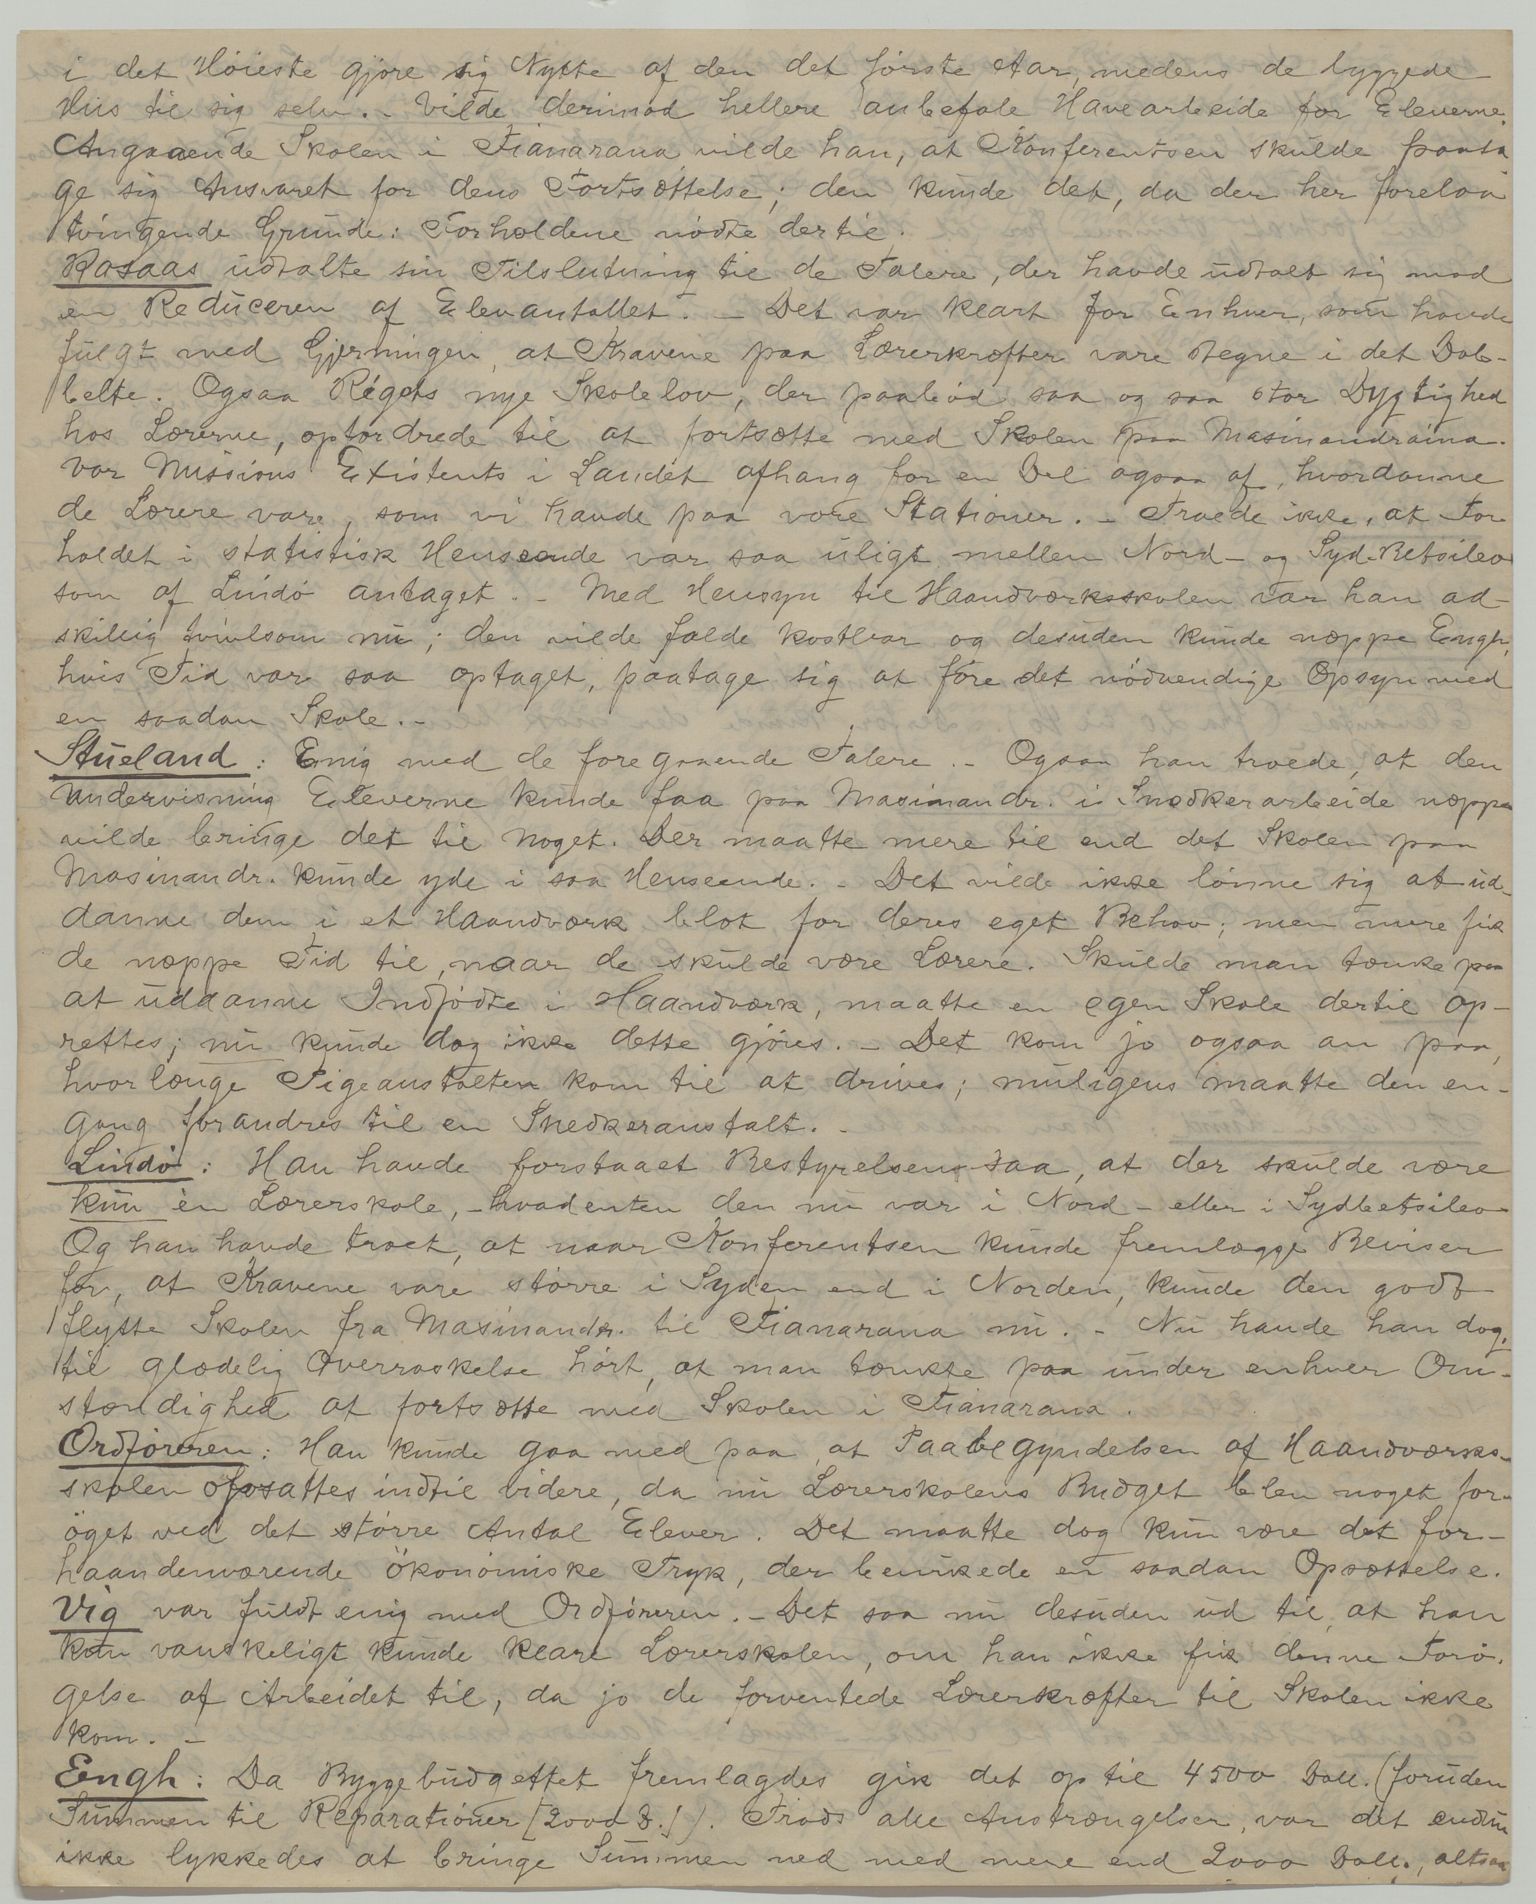 i det Höieste gjøre sig Nytte af den det første Aar, medens de byggede
Hus til sig selv. - Vilde derimod hellere anbefale Havearbeide for Eleverne.
Angaaende Skolen i Fianarana vilde han, at Konferentsen skulde paata
ge sig Ansvaret for dens Fortsættelse; den kunde det, da der her forelaa
tvingende Grunde: Forholdene nødte dertil.
Rosaas udtalte sin Tilslutning til de Talere, der havde udtalt sig mod
en Reduceren af Elevantallet. - Det var klart for Enhver, som havde
fulgt med Gjerningen, at Kravene paa Lærerkræfter vare stegne i det Dob-
belte. Ogsaa Rigets nye Skolelov, der paabød saa og saa stor Dygtighed
hos Lærerne, opfordrede til at fortsætte med Skolen paa Masinandraina.
Vor Missions Existents i Landet afhang for en Del ogsaa af, hvordanne
de Lærere vare, som vi havde paa vore Stationer. - Troede ikke, at For
holdet i statistisk Henseende var saa uligt mellen Nord- og Syd-Betsileo
som af Lindø antaget. - Med Hensyn til Haandværksskolen var han ad-
skillig tvivlsom nu; den vilde falde kostbar og desuden kunde næppe Engh,
hvis Tid var saa optaget, paatage sig at føre det nödvendige Opsyn med
en saadan Skole. -
Stueland: Enig med de foregaaende Talere. - Ogsaa han troede, at den
Undervisning Eleverne kunde faa paa Masinandr. i Snedkerarbeide næppe
vilde bringe det til noget. Der maatte mere til end det Skolen paa
Masinandr. kunde yde i saa Henseende. - Det vilde ikke lönne sig at ud-
danne dem i et Haandværk blot for deres eget Behov; men mere fik
de næppe Tid til, naar de skulde være Lærere. Skulde man tænke paa
at uddanne Indfødte i Haandværk, maatte en egen Skole dertil op-
rettes; nu kunde dog ikke dette gjöres. - Det kom jo ogsaa an paa,
hvorlænge Pigeanstalten kom til at drives; muligens maatte den en-
gang forandres til en Snedkeranstalt. -
Lindø: Han havde forstaaet Bestyrelsen saa, at der skulde være
kun èn Lærerskole, - hvadenten den nu var i Nord- eller i Sydbetsileo
Og han havde troet, at naar Konferentsen kunde fremlægge Beviser
for, at Kravene vare större i Syden end i Norden, kunde den godt
flytte Skolen fra Masinandr. til Fianarana nu. - Nu havde han dog,
til glædelig Overraskelse hørt, at man tænkte paa under enhver Om-
stændighed at fortsætte med Skolen i Fianarana.
Ordføreren: Han kunde gaa med paa, at Paabegyndelsen af Haandværks-
skolen opsattes indtil videre, da nu Lærerskolens Budget blev noget for-
öget ved det større Antal Elever. Det maatte dog kun være det for-
haandenværende ökonomiske Tryk, der bevirkede en saadan Opsættelse.
Vig var fuldt enig med Ordføreren. - Det saa nu desuden ud til, at han
vanskeligt kunde klare Lærerskolen, om han ikke fik denne Forø-
gelse af Arbeidet til, da jo de forventede Lærerkræfter til Skolen ikke
kom. -
Engh: Da Byggebudgettet fremlagdes gik det op til 4500 Doll. (foruden
Summen til Reparationer [2000 D.]). Trods alle Anstrængelser, var det endnu
ikke lykkedes at bringe Summen ned med mere end 2000 Doll., altsaa